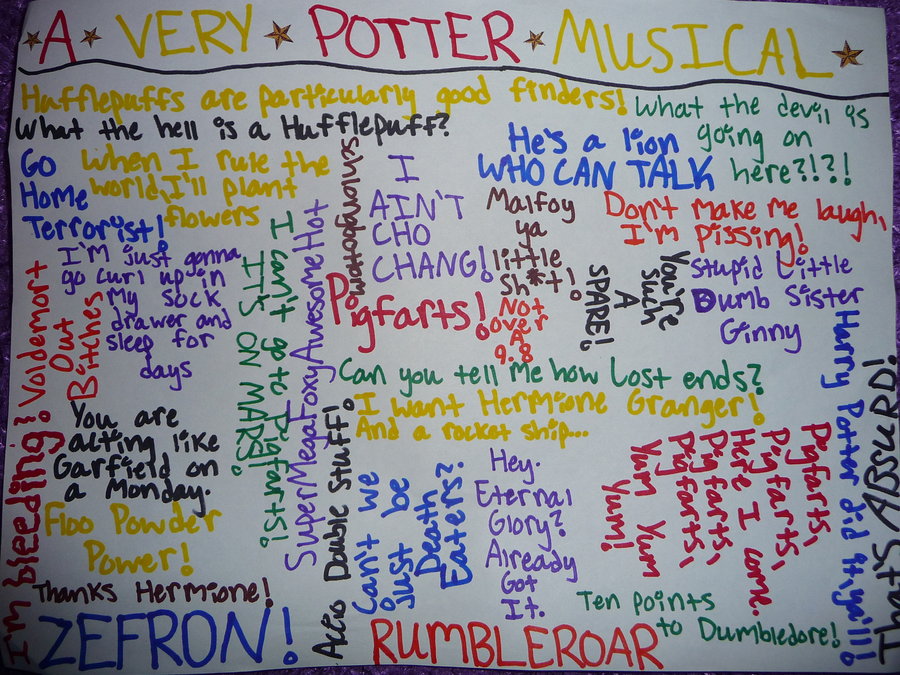 A VERY POTTER MUSICAL
Hufflepuffs are particularly good finders!
What the devil is
going on
here?!?!
What the hell is a Hufflepuff?
He's a lion
WHO CAN TALK
Go
Home
Terrorist!
When I rule the
world, I'll plant
flowers
I
AIN'T
CHO
CHANG!
Malfoy
ya
little
sh*t!
Don't make me laugh,
I'm pissing!
I'm just gonna
go curl up in
my sock
drawer and
sleep for
days
Voldemort
Out
Bitches
I can't go to Pigfarts!
IT'S ON MARS!
SuperMegaFoxyAwesomeHot
Pigfarts!
Not
over
A
9.8
You're
such
A
SPARE!
Stupid Little
Dumb Sister
Ginny
Can you tell me how Lost ends?
I want Hermione Granger!
And a rocket ship...
You are
acting like
Garfield on
a Monday.
Floo Powder
Power!
I'm bleeding!
Thanks Hermione!
ZEFRON!
Accio Double Stuff!
Can't we
just be
Death
Eaters?
Hey.
Eternal
Glory?
Already
Got
It.
Pigfarts,
Pigfarts,
Here I come
Pigfarts,
Pigfarts,
Yum Yum
Yum!
Harry Potter did it y'all!
That's ABSURD!
Ten points
to Dumbledore!
RUMBLEROAR